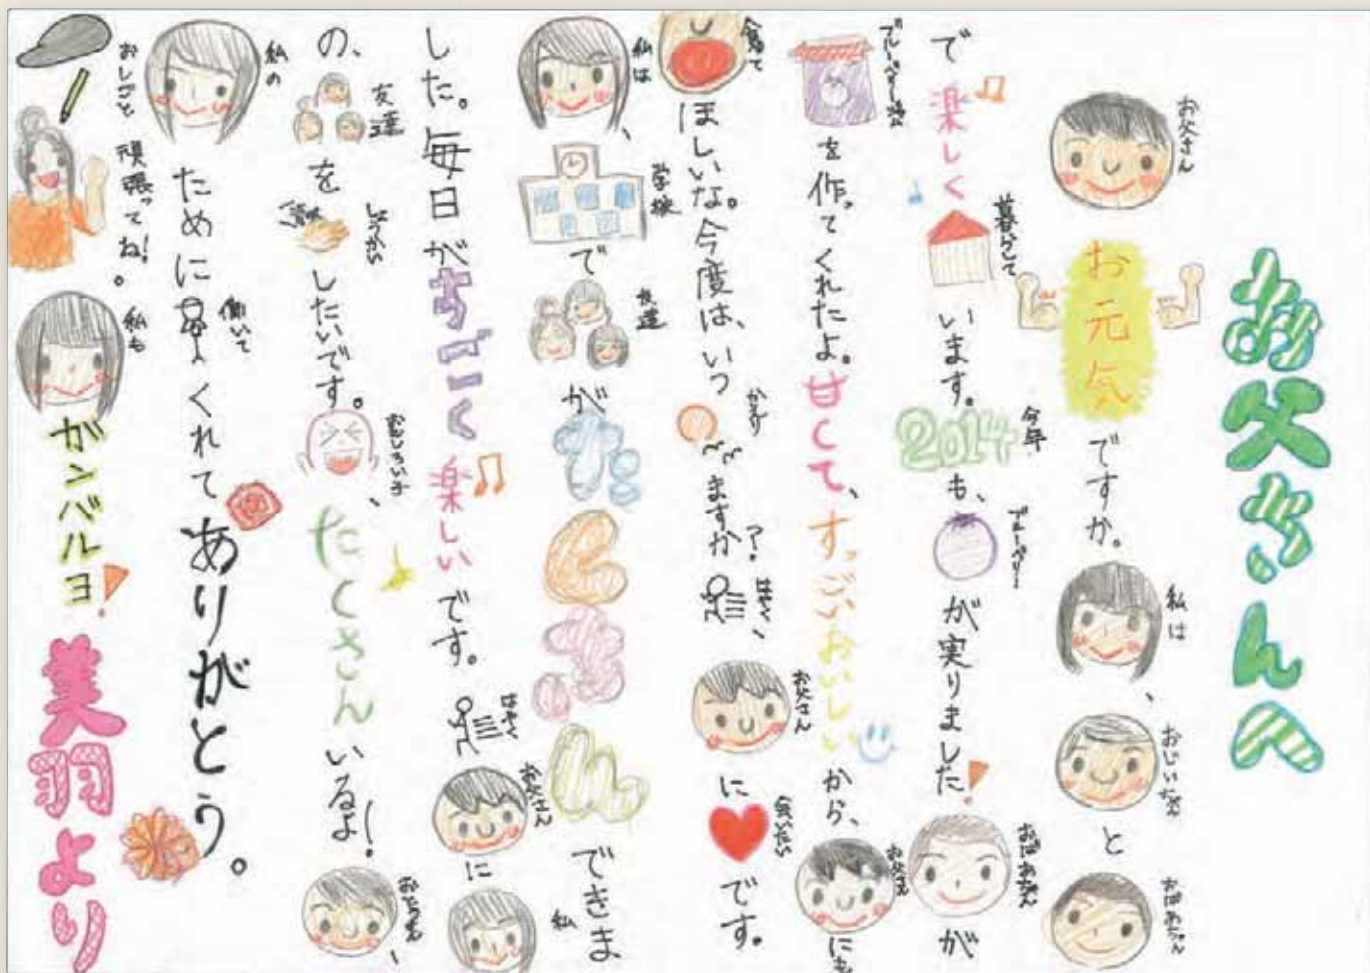 お父さんへ
お父さんお元気ですか。私は、おじいちゃんとおばあちゃん
で楽しく暮らしています。今年2014も、ブルーベリーが実りました！おばあちゃんが
ブルーベリーを作ってくれたよ。甘くて、すっごいおいしいから、お父さんにも
食べてほしいな。今度は、いつかえりますか？はやく、お父さんに会いたいです。
私は、学校で友達がたくさんできま
した。毎日がすごーく楽しいです。はやくお父さんに私
の、友達をしょうかいしたいです。おもしろい子、たくさんいるよ！おとうさん、
私のために働いてくれてありがとう。
おしごと頑張ってね！。私もガンバルヨ！美羽より